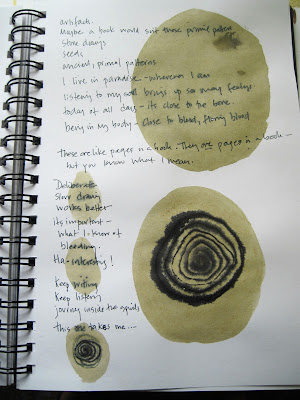 artifact.
Maybe a book would suit these primal patterns
slow drawings
seeds
ancient, primal patterns
I live in paradise - wherever I am
listening to my soul brings up so many feelings
today of all days - its close to the bone.
being in my body - close to blood, flowing blood
These are like pages in a book. They are pages in a book -
but you know what I mean.
Deliberate
slow drawing
works better
its important -
what I know of
bleeding.
Ha - interesting!
Keep writing
Keep listening
journey inside the spirals
this one takes me...